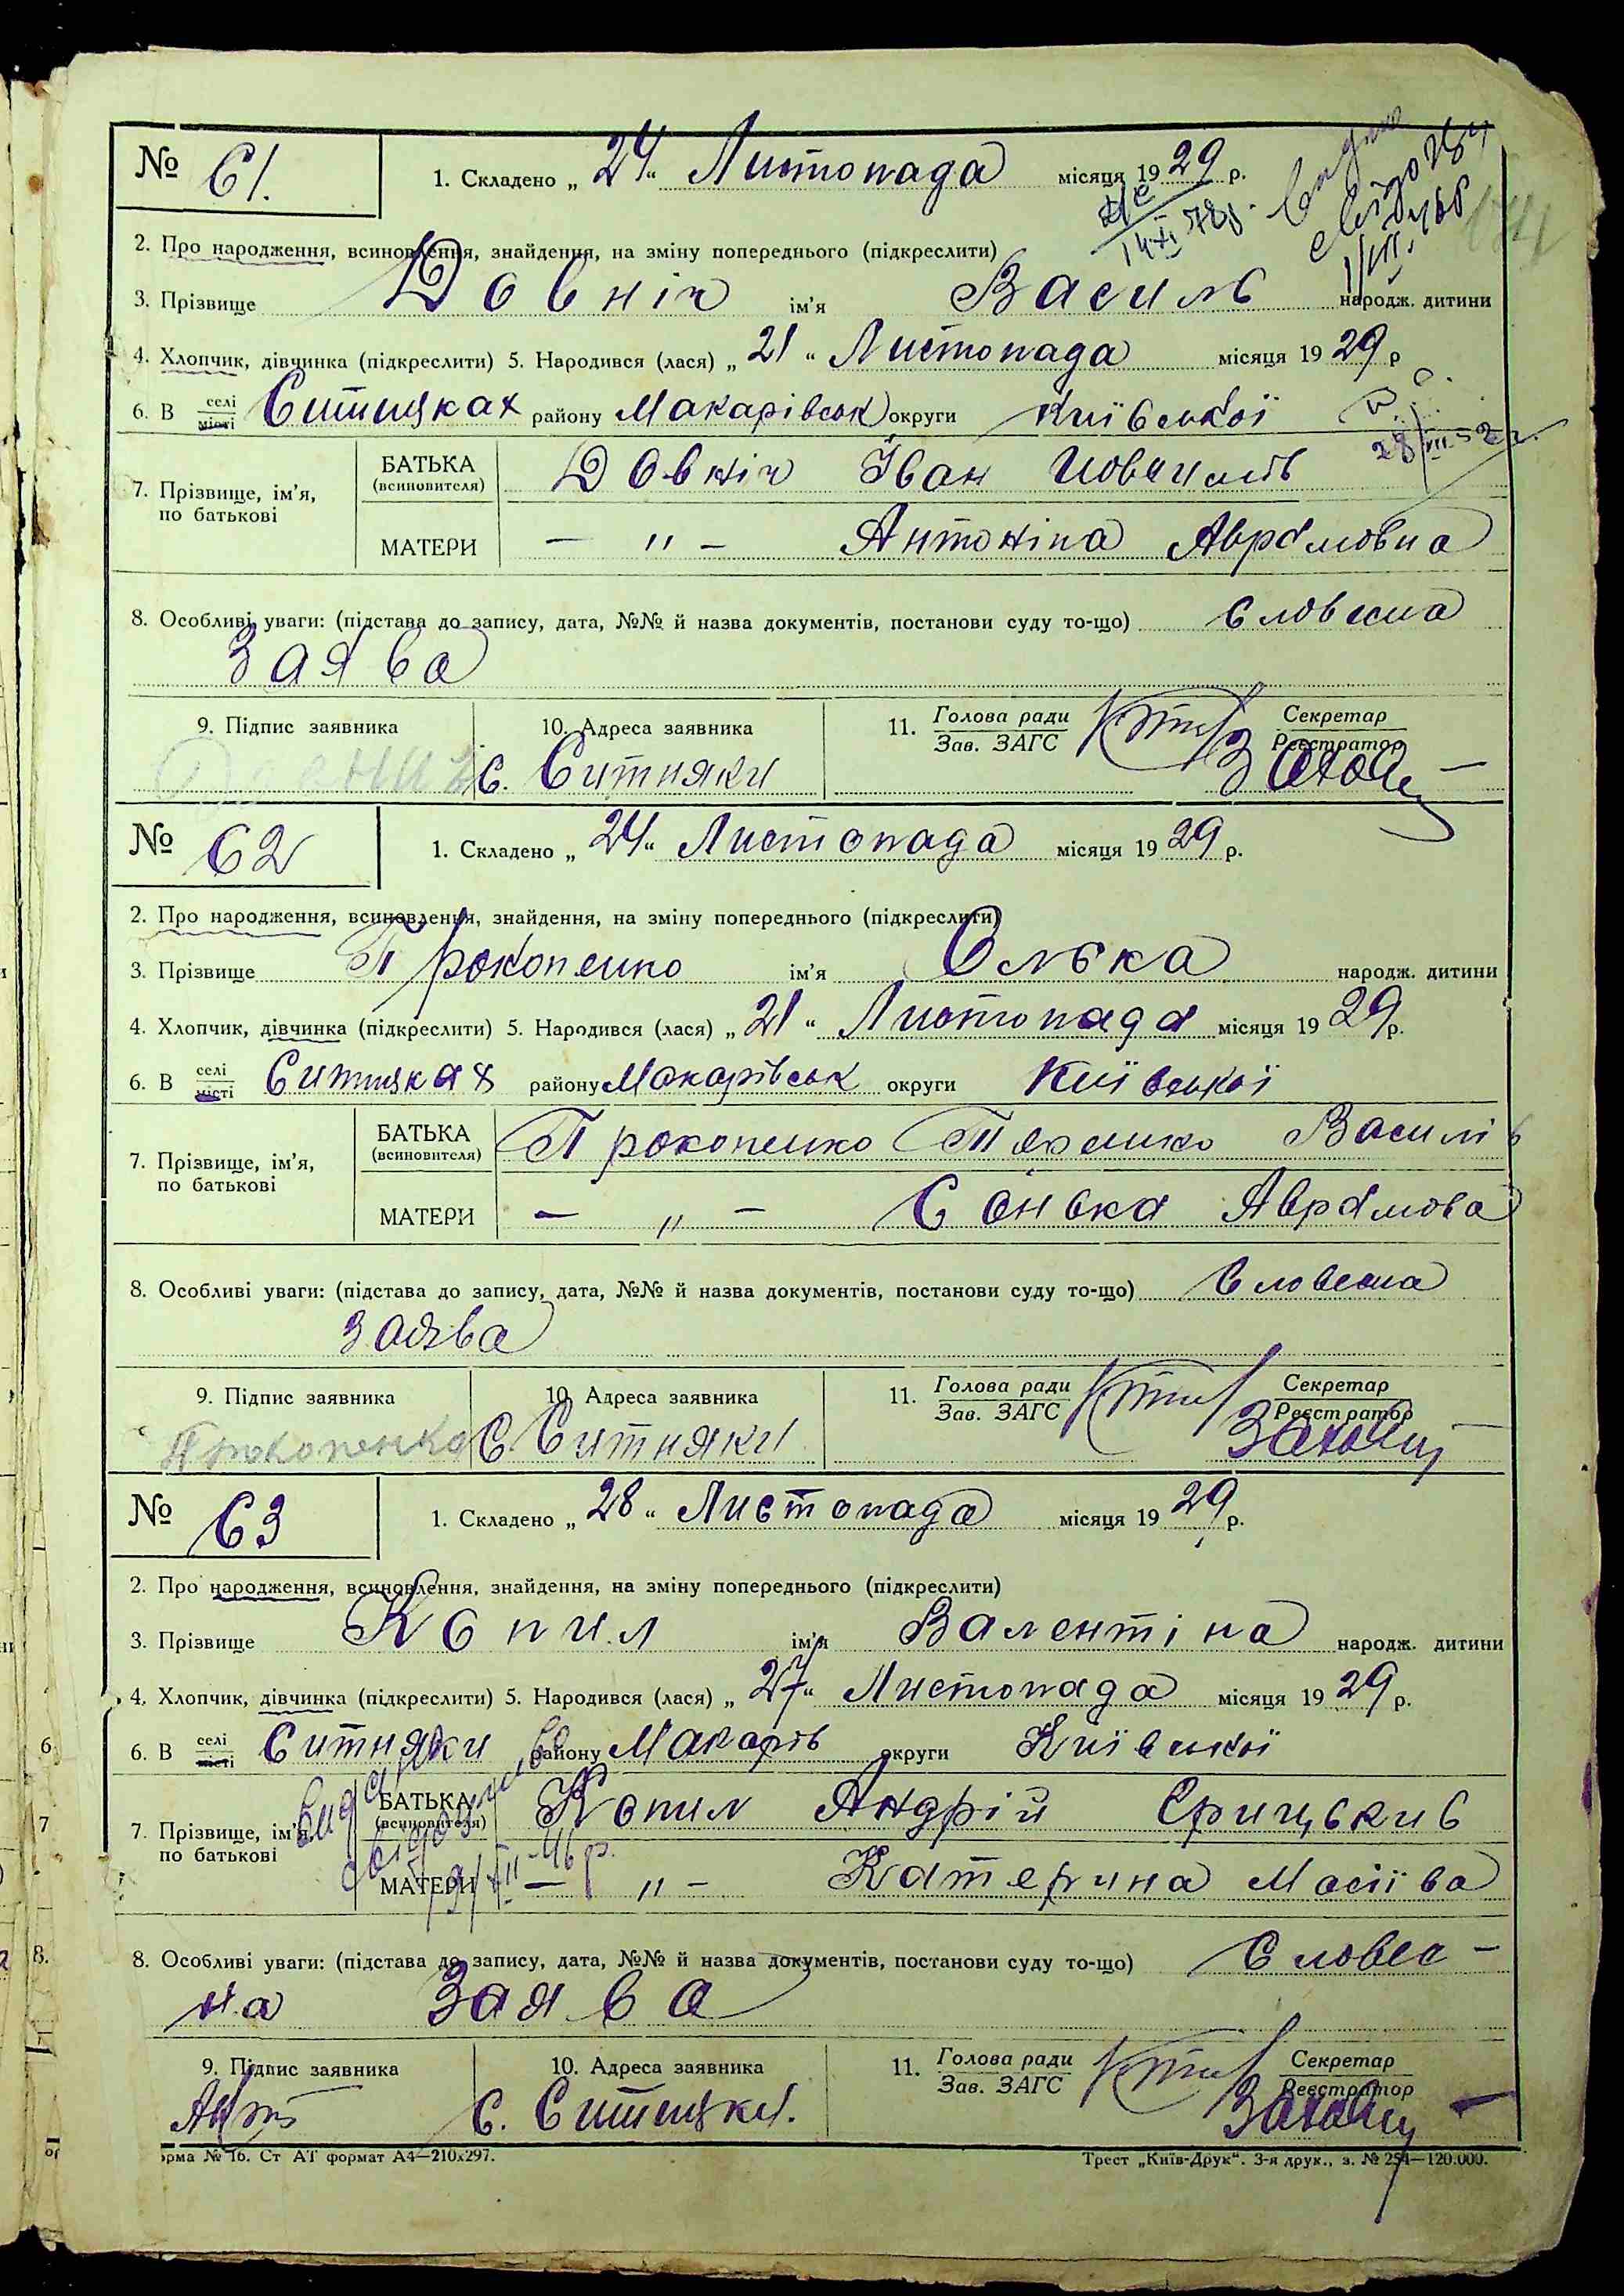 № 61. 1. Складено „ 24 “ Листопада місяця 1929 р.
2. Про народження, всиновлення, знайдення, на зміну попереднього (підкреслити)
3. Прізвище Довніч ім'я Василь народж. дитини
4. Хлопчик, дівчинка (підкреслити) 5. Народився (лася) „ 21 “ Листопада місяця 1929 р
6. В селі місті Ситняках району Макарівськ округи Київської
7. Прізвище, ім'я, по батькові
БАТЬКА (всиновителя) Довніч Іван
МАТЕРИ — „ — Антоніна Аврамовна
8. Особливі уваги: (підстава до запису, дата, №№ й назва документів, постанови суду то-що) Словесна
Заява
9. Підпис заявника 10. Адреса заявника 11. Голова ради Зав. ЗАГС Секретар Реєстратор
с. Ситняки
№ 62 1. Складено „ 24 “ Листопада місяця 1929 р.
2. Про народження, всиновлення, знайдення, на зміну попереднього (підкреслити)
3. Прізвище Прокопенко ім'я Олька народж. дитини
4. Хлопчик, дівчинка (підкреслити) 5. Народився (лася) „ 21 “ Листопада місяця 1929 р.
6. В селі місті Ситняках району Макарівськ округи Київської
7. Прізвище, ім'я, по батькові
БАТЬКА (всиновителя) Прокопенко Василів
МАТЕРИ — „ — Сонька Аврамова
8. Особливі уваги: (підстава до запису, дата, №№ й назва документів, постанови суду то-що) Словесна
заява
9. Підпис заявника 10. Адреса заявника 11. Голова ради Зав. ЗАГС Секретар Реєстратор
Прокопенко С Ситняки
№ 63 1. Складено „ 28 “ Листопада місяця 1929 р.
2. Про народження, всиновлення, знайдення, на зміну попереднього (підкреслити)
3. Прізвище Копил ім'я Валентіна народж. дитини
4. Хлопчик, дівчинка (підкреслити) 5. Народився (лася) „ 27 “ Листопада місяця 1929 р.
6. В селі місті Ситняки району Макарів округи Київської
7. Прізвище, ім'я, по батькові
БАТЬКА (всиновителя) Копил Андрій Грицьків
МАТЕРИ — „ — Катерина Масіїва
8. Особливі уваги: (підстава до запису, дата, №№ й назва документів, постанови суду то-що) Словес-
на Заява
9. Підпис заявника 10. Адреса заявника 11. Голова ради Зав. ЗАГС Секретар Реєстратор
С. Ситняки.
орма № 16. Ст АТ формат А4—210х297. Трест „Київ-Друк“. 3-я друк., з. № 254—120.000.